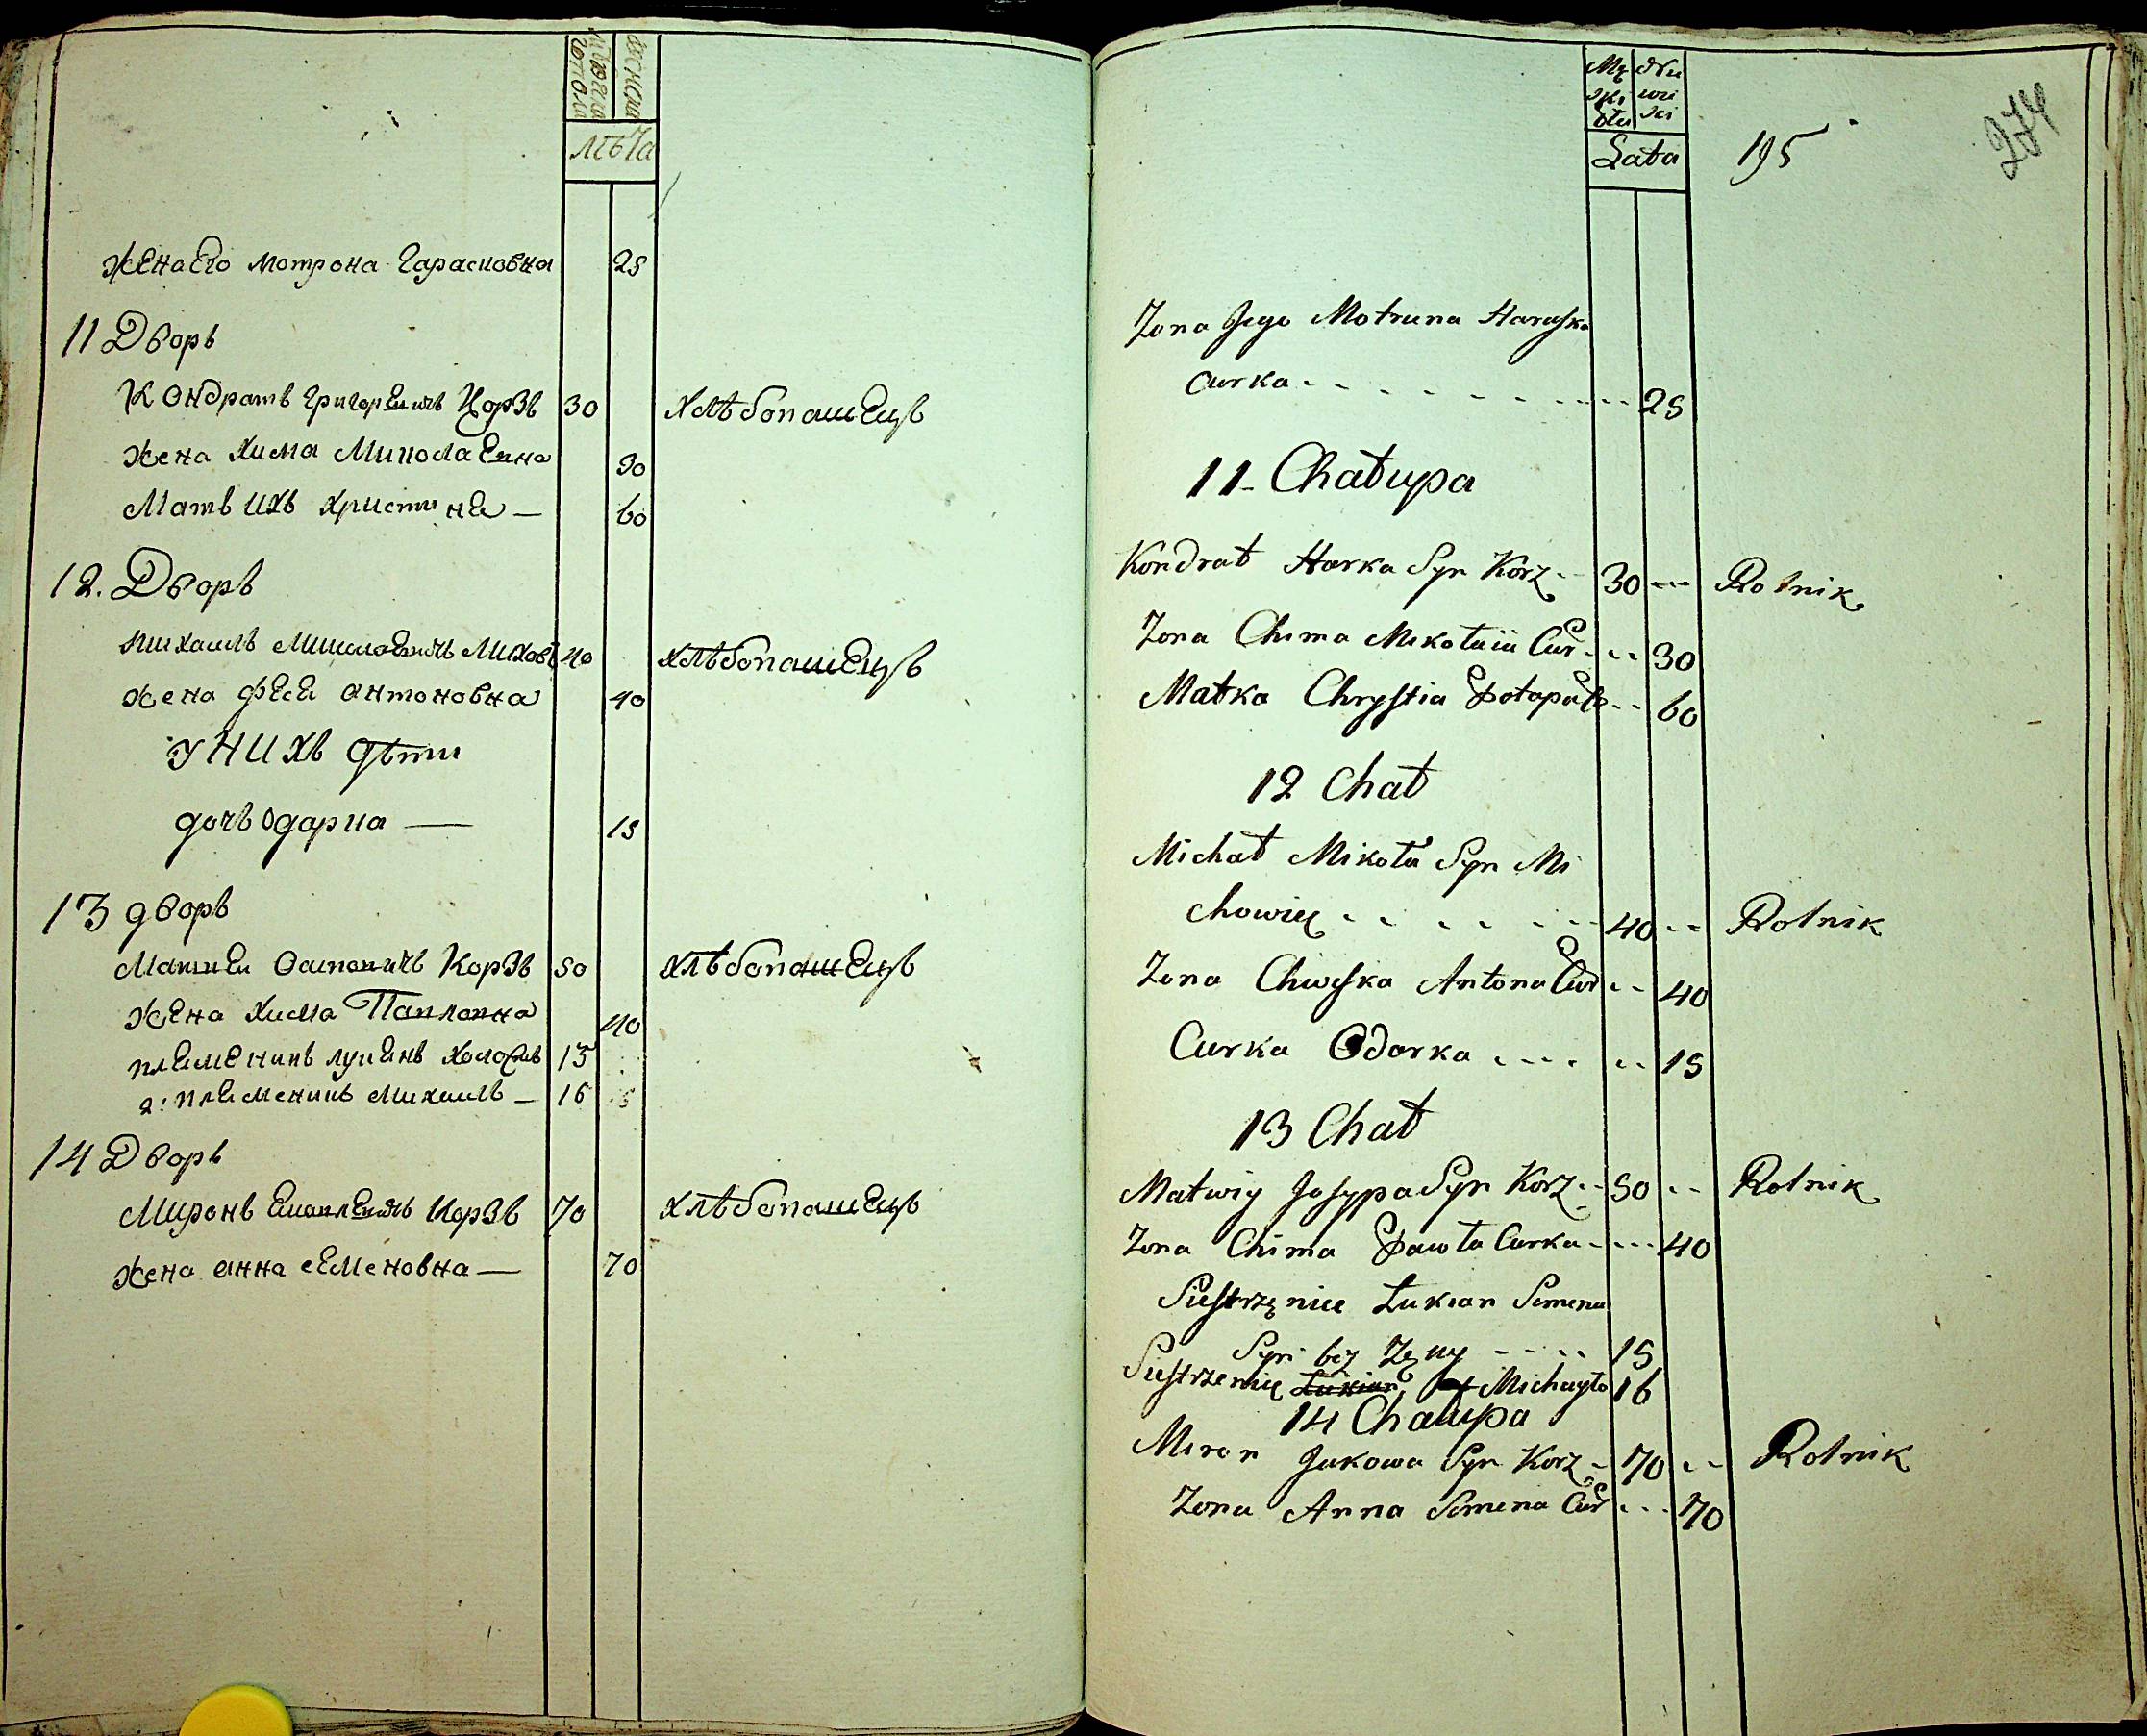 мужеска
женска
пола
лѣта
жена Его мотрона Гарасковна 25
11 Дворъ
Кондратъ Григориевичъ Коржъ 30 хлѣбопашЕцъ
жена Хима Миколаевна 30
Мать ихъ Христина — 60
12. Дворъ
михаилъ Миколаевичъ 40 хлѣбопашЕцъ
жена антоновна 40
у нихъ дѣти
дочь одариа — 15
13 дворъ
Матвей Осиповичъ Коржъ 50 хлѣбопашЕцъ
жЕна Хима Павловна 40
племЕникъ лукянъ 15
2: племеникъ михаилъ — 16
14 Дворъ
Миронъ Коржъ 70 хлѣбопашЕцъ
жена анна сЕменовна — 70
Lata
195
274
Zona Jego Motruna Haraska
Curka 25
11 - Chałupa
Kondrat Harka Syn Korz 30 -- Rolnik
Zona Chima Mikołaii Cur 30
Matka Chrystia 60
12 Chał
Michał Mikoła Syn Mi
chowiec 40 -- Rolnik
Zona Chweska Antona Cur 40
Curka Odarka 15
13 Chał
Matwiy Josypa Syn Korz 50 -- Rolnik
Zona Chima Pawła Curka 40
Siestrzęniec Łukian Semena
Syn bez Zęny 15
Siestrzeniec Łukian Michayło 16
14 Chałupa
Miron Jakowa Syn Korz 70 -- Rolnik
Zona Anna Semena Cur 70